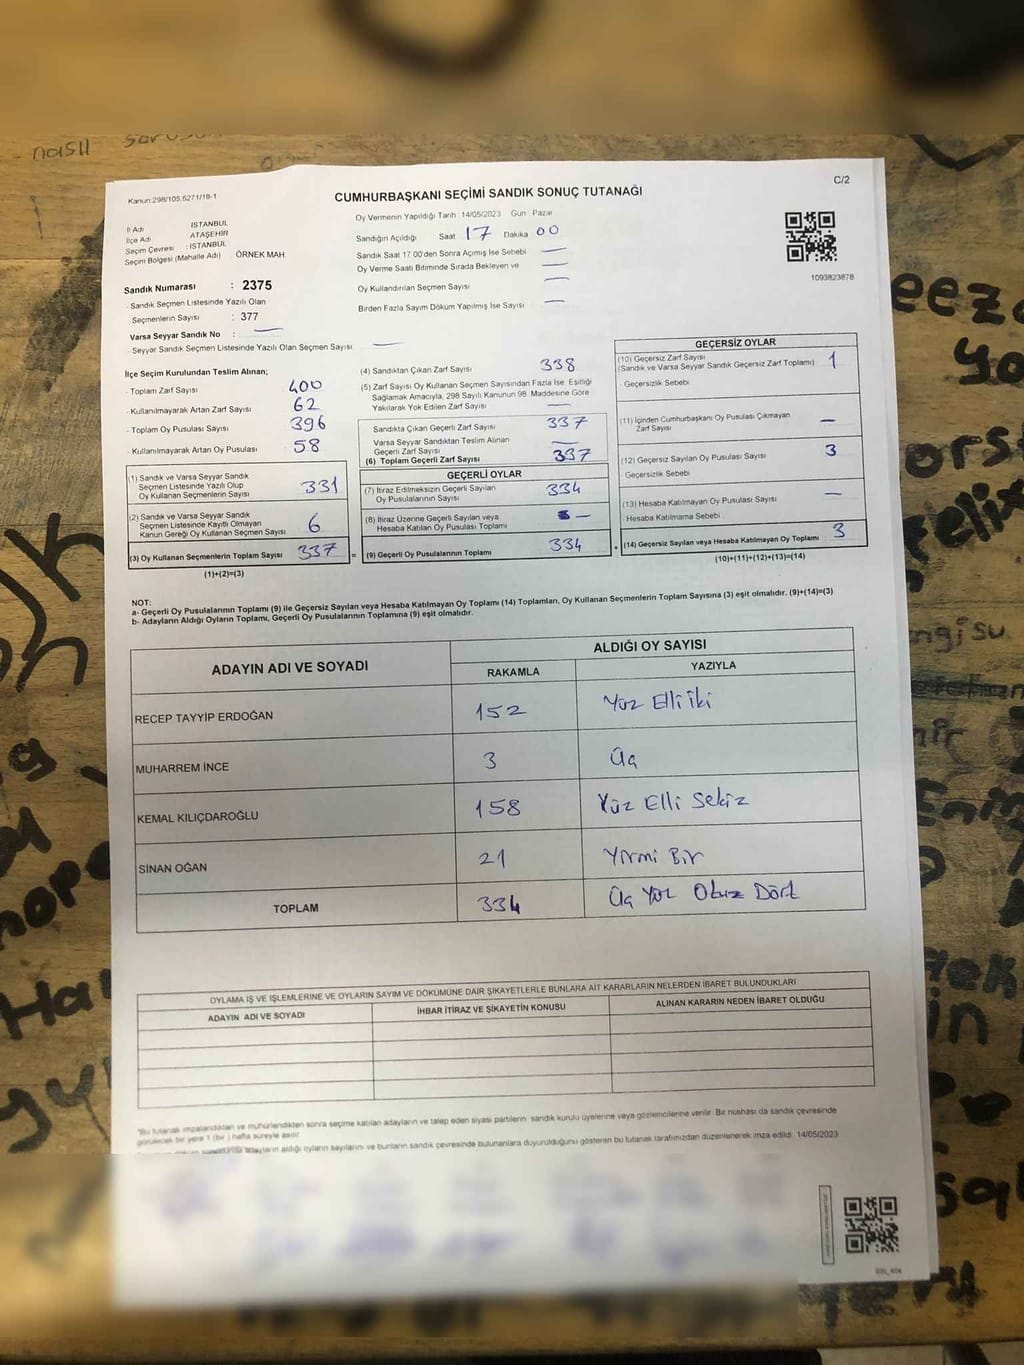 nasıl
C/2
Kanun:298/105.6271/18-1
CUMHURBAŞKANI SEÇİMİ SANDIK SONUÇ TUTANAĞI
İl Adı İSTANBUL
İlçe Adı ATAŞEHİR
Seçim Çevresi : İSTANBUL
Seçim Bölgesi (Mahalle Adı) ÖRNEK MAH
Oy Vermenin Yapıldığı Tarih 14/05/2023 Gün : Pazar
Sandığın Açıldığı Saat 17 Dakika 00
Sandık Saat 17 00'den Sonra Açımış İse Sebebi —
Oy Verme Saati Bitiminde Sırada Bekleyen ve —
Oy Kullandırılan Seçmen Sayısı —
Birden Fazla Sayım Döküm Yapılmış İse Sayısı —
1093823878
Sandık Numarası : 2375
- Sandık Seçmen Listesinde Yazılı Olan
Seçmenlerin Sayısı : 377
Varsa Seyyar Sandık No : —
- Seyyar Sandık Seçmen Listesinde Yazılı Olan Seçmen Sayısı —
İlçe Seçim Kurulundan Teslim Alınan;
- Toplam Zarf Sayısı 400
- Kullanılmayarak Artan Zarf Sayısı 62
- Toplam Oy Pusulası Sayısı 396
- Kullanılmayarak Artan Oy Pusulası 58
(1) Sandık ve Varsa Seyyar Sandık
Seçmen Listesinde Yazılı Olup
Oy Kullanan Seçmenlerin Sayısı 331
(2) Sandık ve Varsa Seyyar Sandık
Seçmen Listesinde Kayıtlı Olmayan
Kanun Gereği Oy Kullanan Seçmen Sayısı 6
(3) Oy Kullanan Seçmenlerin Toplam Sayısı 337 =
(1)+(2)=(3)
(4) Sandıktan Çıkan Zarf Sayısı 338
(5) Zarf Sayısı Oy Kullanan Seçmen Sayısından Fazla İse. Eşitliği
Sağlamak Amacıyla, 298 Sayılı Kanunun 98. Maddesine Göre
Yakılarak Yok Edilen Zarf Sayısı —
Sandıkta Çıkan Geçerli Zarf Sayısı 337
Varsa Seyyar Sandıktan Teslim Alınan
Geçerli Zarf Sayısı —
(6) Toplam Geçerli Zarf Sayısı 337
GEÇERLİ OYLAR
(7) İtiraz Edilmeksizin Geçerli Sayılan
Oy Pusulalarının Sayısı 334
(8) İtiraz Üzerine Geçerli Sayılan veya
Hesaba Katılan Oy Pusulası Toplamı —
(9) Geçerli Oy Pusulalarının Toplamı 334 +
GEÇERSİZ OYLAR
(10) Geçersiz Zarf Sayısı
(Sandık ve Varsa Seyyar Sandık Geçersiz Zarf Toplamı) 1
- Geçersizlik Sebebi
(11) İçinden Cumhurbaşkanı Oy Pusulası Çıkmayan
Zarf Sayısı —
(12) Geçersiz Sayılan Oy Pusulası Sayısı 3
- Geçersizlik Sebebi
(13) Hesaba Katılmayan Oy Pusulası Sayısı —
Hesaba Katılmama Sebebi
(14) Geçersiz Sayılan veya Hesaba Katılmayan Oy Toplamı 3
(10)+(11)+(12)+(13)=(14)
NOT:
a- Geçerli Oy Pusulalarının Toplamı (9) ile Geçersiz Sayılan veya Hesaba Katılmayan Oy Toplamı (14) Toplamları, Oy Kullanan Seçmenlerin Toplam Sayısına (3) eşit olmalıdır. (9)+(14)=(3)
b- Adayların Aldığı Oyların Toplamı, Geçerli Oy Pusulalarının Toplamına (9) eşit olmalıdır.
ADAYIN ADI VE SOYADI
ALDIĞI OY SAYISI
RAKAMLA YAZIYLA
RECEP TAYYİP ERDOĞAN 152 Yüz Elli iki
MUHARREM İNCE 3 Üç
KEMAL KILIÇDAROĞLU 158 Yüz Elli Sekiz
SİNAN OĞAN 21 Yirmi Bir
TOPLAM 334 Üç Yüz Otuz Dört
OYLAMA İŞ VE İŞLEMLERİNE VE OYLARIN SAYIM VE DÖKÜMÜNE DAİR ŞİKAYETLERLE BUNLARA AİT KARARLARIN NELERDEN İBARET BULUNDUKLARI
ADAYIN ADI VE SOYADI İHBAR İTİRAZ VE ŞİKAYETİN KONUSU ALINAN KARARIN NEDEN İBARET OLDUĞU
*Bu tutanak imzalandıktan ve mühürlendikten sonra seçime katılan adayların ve talep eden siyasi partilerin sandık kurulu üyelerine veya gözlemcilerine verilir. Bir nüshası da sandık çevresinde
görülecek bir yere 1 (bir ) hafta süreyle asılır.
adayların aldığı oyların sayılarını ve bunların sandık çevresinde bulunanlara duyurulduğunu gösteren bu tutanak tarafımızdan düzenlenerek imza edildi. 14/05/2023